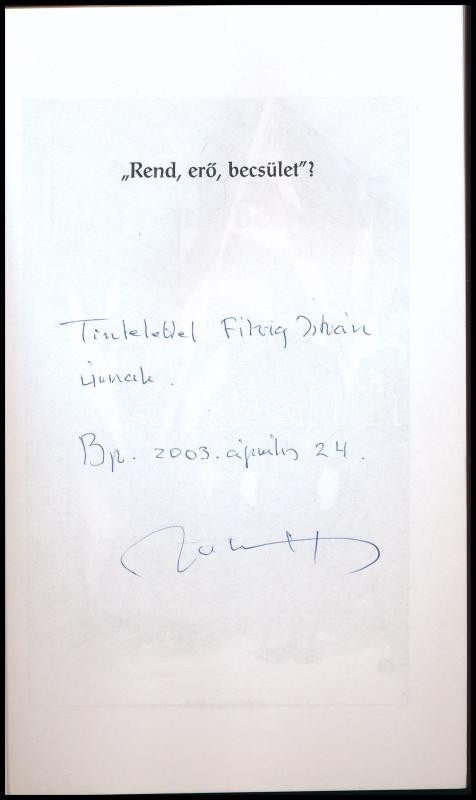 „Rend, erő, becsület”?
Tisztelettel Filvig István
úrnak.
Bp. 2003. április 24.